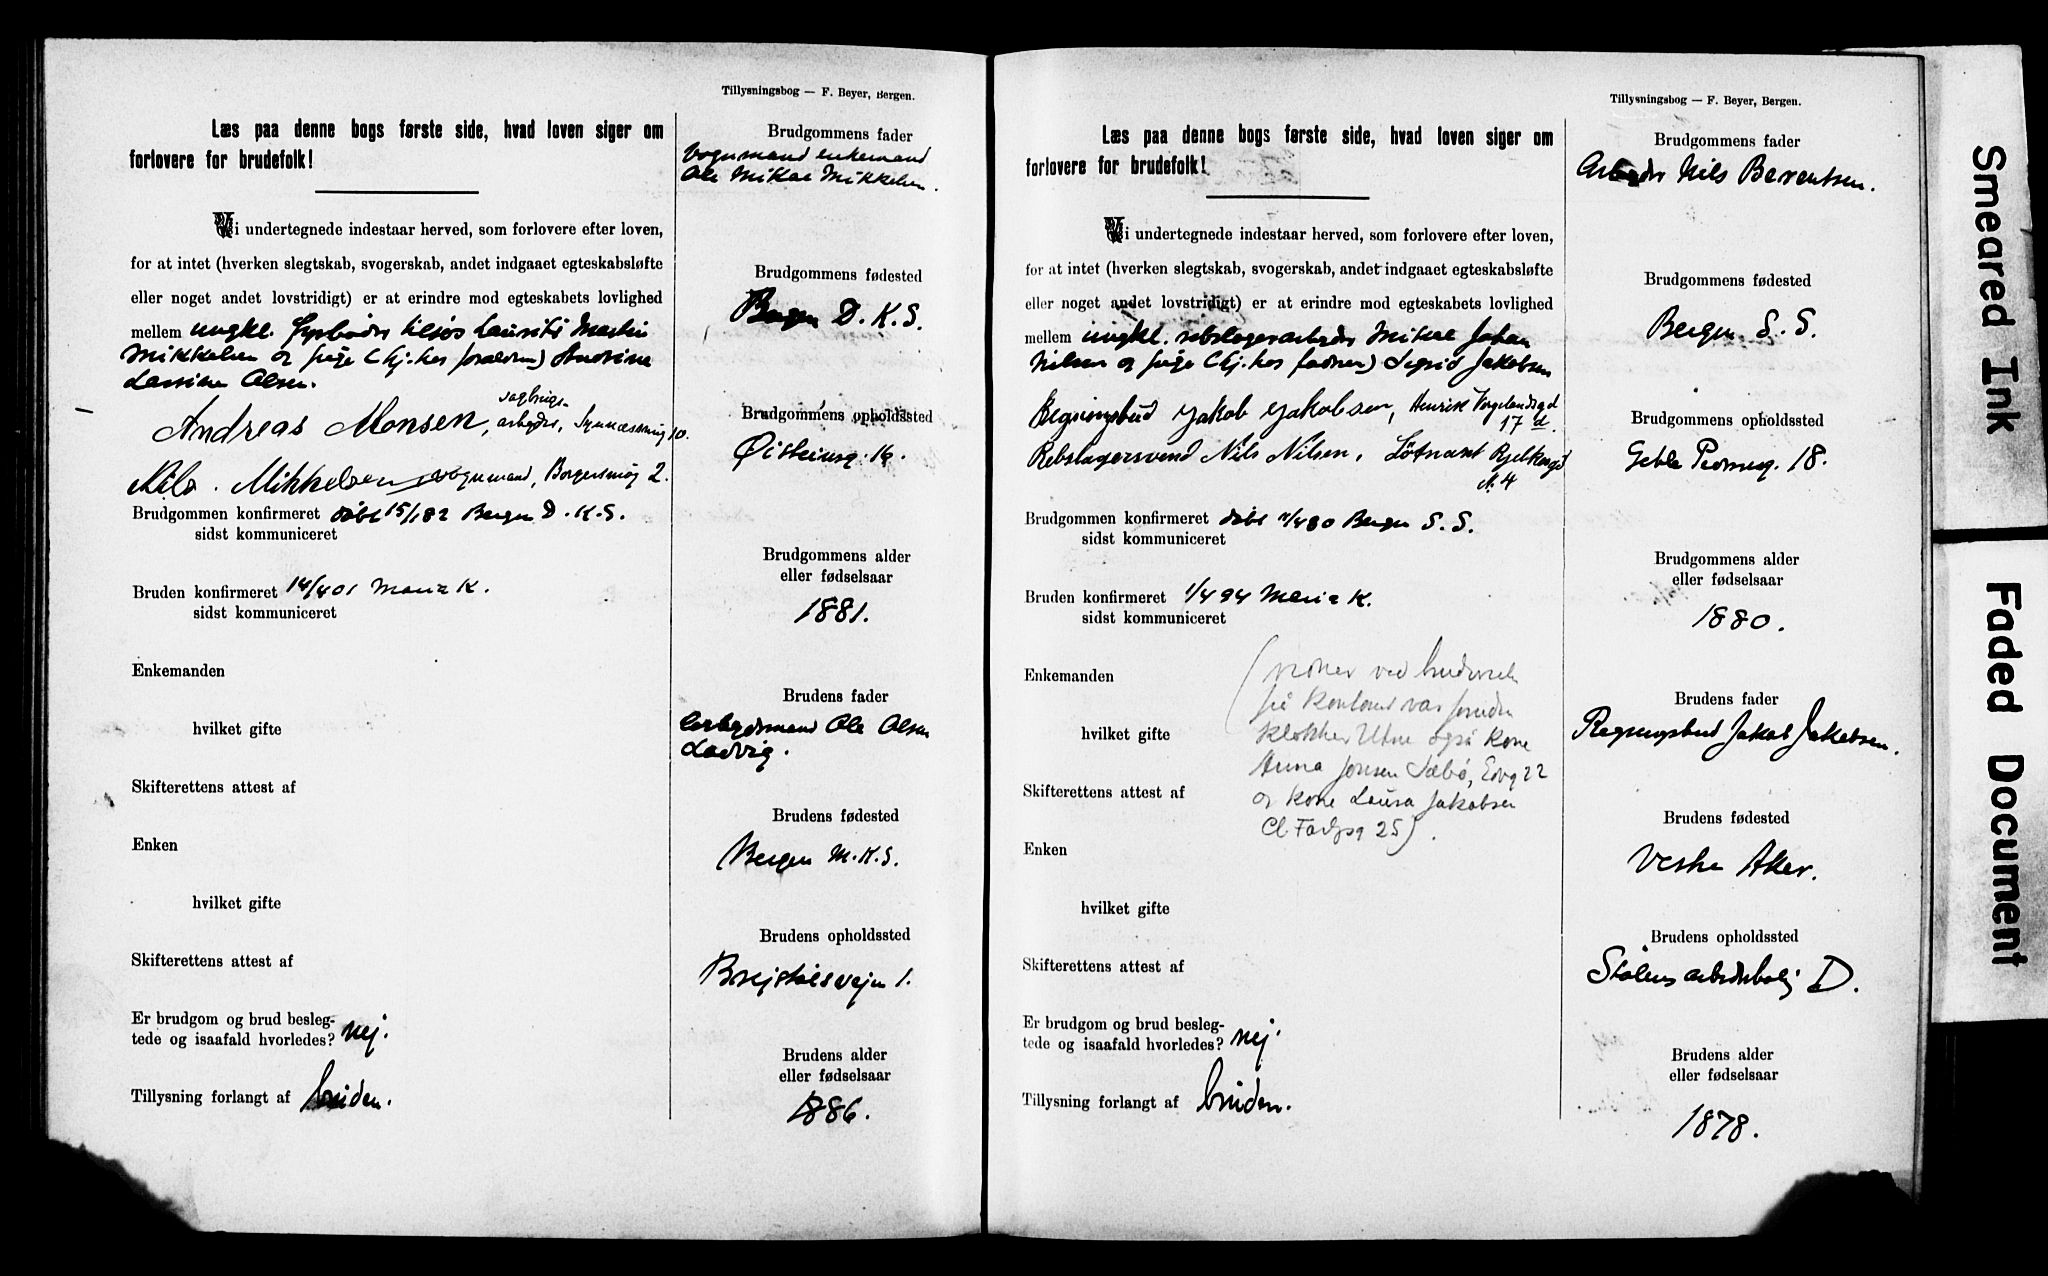 Tillysningsbog — F. Beyer, Bergen.
Læs paa denne bogs første side, hvad loven siger om
forlovere for brudefolk!
Vi undertegnede indestaar herved, som forlovere efter loven,
for at intet (hverken slegtskab, svogerskab, andet indgaaet egteskabsløfte
eller noget andet lovstridigt) er at erindre mod egteskabets lovlighed
mellem ungkl. Laurits Martin
Mikkelsen og pige (hj. hos forældrene) Andrine
Olsen.
Andreas Monsen, arbeder, 10.
Nils Mikkelsen vognmand, 2.
Brudgommen konfirmeret døbt 15/1 82 Bergen D. K. S.
sidst kommuniceret
Bruden konfirmeret 14/4 01 Maria K.
sidst kommuniceret
Enkemanden
hvilket gifte
Skifterettens attest af
Enken
hvilket gifte
Skifterettens attest af
Er brudgom og brud besleg-
tede og isaafald hvorledes? nej.
Tillysning forlangt af bruden.
Brudgommens fader
Vognmand enkemand
Ole Mikal Mikkelsen.
Brudgommens fødested
Bergen D. K. S.
Brudgommens opholdssted
Øisteinsg. 16.
Brudgommens alder
eller fødselsaar
1881.
Brudens fader
Arbeidsmand Ole Olsen
Ladvig.
Brudens fødested
Bergen M. K. S.
Brudens opholdssted
Breistølsvejen 1.
Brudens alder
eller fødselsaar
1886.
Tillysningsbog — F. Beyer, Bergen.
Læs paa denne bogs første side, hvad loven siger om
forlovere for brudefolk!
Vi undertegnede indestaar herved, som forlovere efter loven,
for at intet (hverken slegtskab, svogerskab, andet indgaaet egteskabsløfte
eller noget andet lovstridigt) er at erindre mod egteskabets lovlighed
mellem ungkl. rebslagerarbeder Mikal Johan
Nilsen og pige (hj. hos faderen) Sigrid Jakobsen
Regningsbud Jakob Jakobsen, Henrik Vergelandsgd
17 d.
Rebslagersvend Nils Nilsen, Løtnant
N. 4
Brudgommen konfirmeret døbt /4 80 Bergen S. S.
sidst kommuniceret
Bruden konfirmeret 1/4 94 Maria K.
sidst kommuniceret
Enkemanden
hvilket gifte
Skifterettens attest af
Enken
hvilket gifte
Skifterettens attest af
Er brudgom og brud besleg-
tede og isaafald hvorledes? nej.
Tillysning forlangt af bruden.
(vidner ved
på kontoret var foruden
klokker Utne også kone
Anna Jonsen Sæbø, 22
og kone Laura Jakobsen
25).
Brudgommens fader
Arbeder Nils Berentsen.
Brudgommens fødested
Bergen S. S.
Brudgommens opholdssted
Geble Pedersensg. 18.
Brudgommens alder
eller fødselsaar
1880.
Brudens fader
Regningsbud Jakob Jakobsen.
Brudens fødested
Vestre Aker.
Brudens opholdssted
Stølens arbederbolig D.
Brudens alder
eller fødselsaar
1878.
Smeared Ink
Faded Document